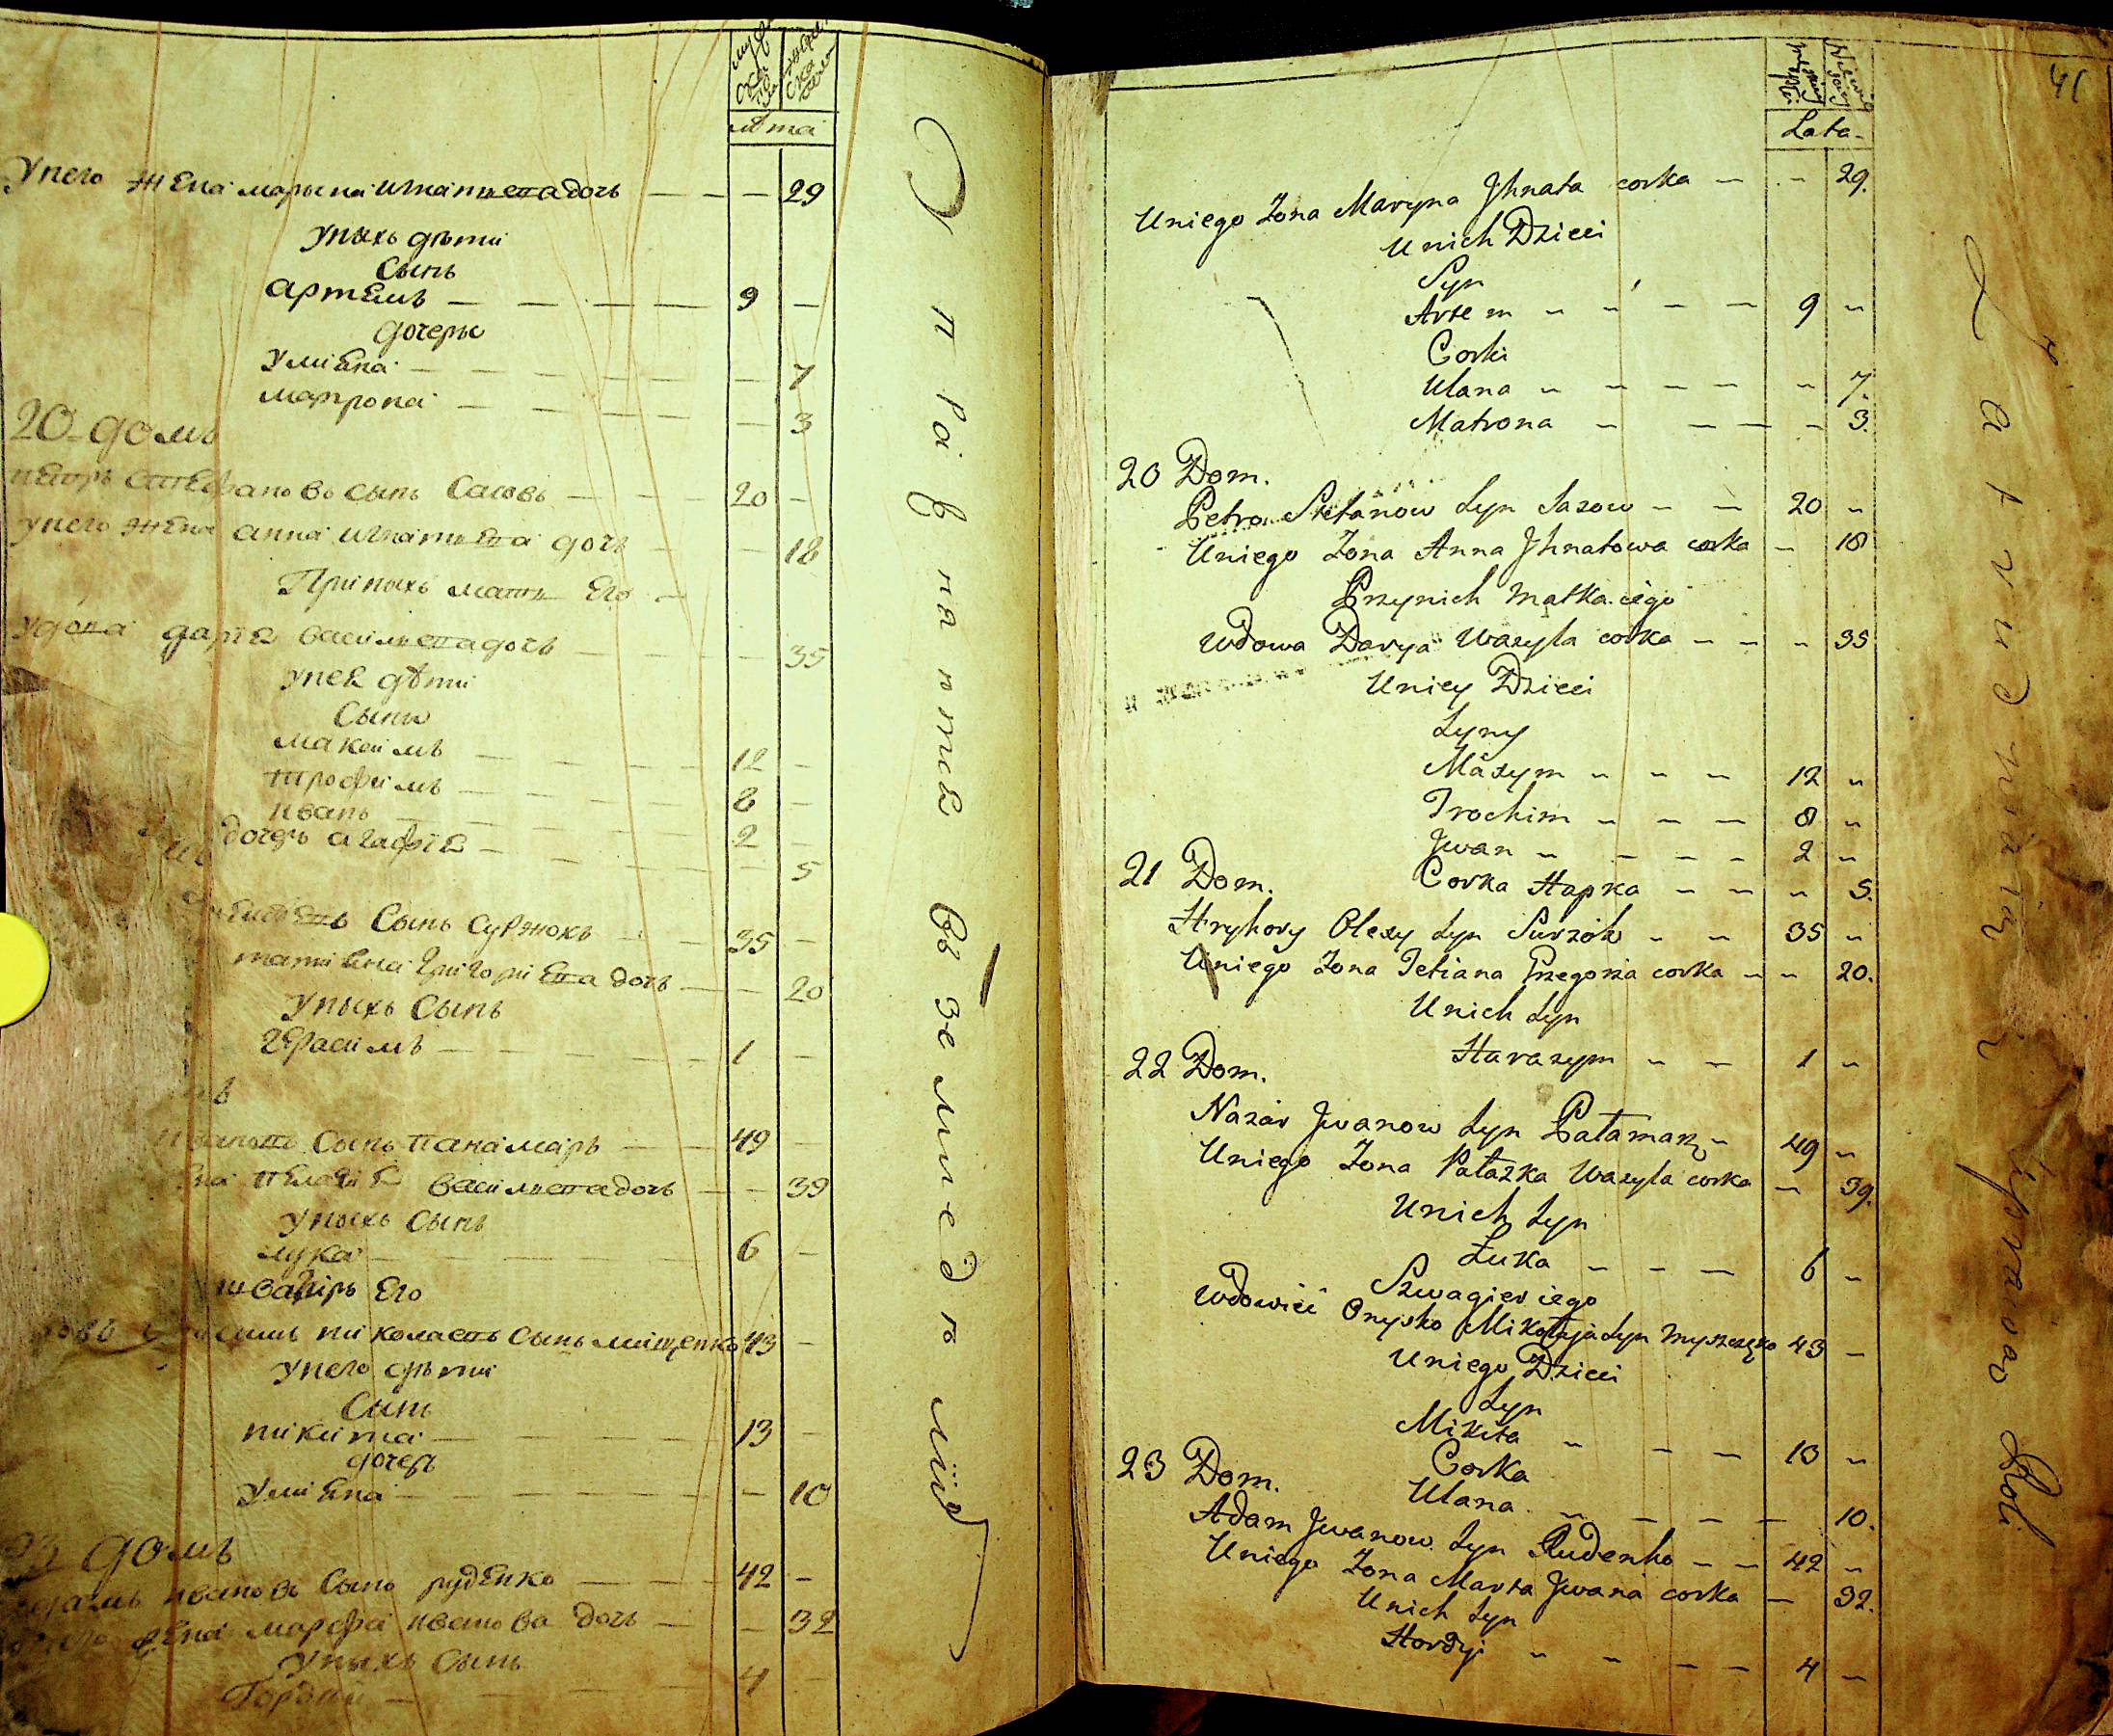 лѣта
Унего жена марына игнатиева дочь — — — 29
Уныхъ дѣти
Сынъ
артемъ — — — — 9 —
дочеры
Улиена — — — — — 7
матрона — — — — 3
20 домъ
петръ стефановъ сынъ сасовъ — — — 20 —
унего жена анна игнатиева дочь — — 18
При ныхъ мати его —
удова дария василиева дочь — — — — 35
унее дѣти
Сыны
максимъ — — — — 12 —
трофимъ — — — — 8 —
иванъ — — — — 2 —
дочерь агафия — — — — 5
Сынъ Суржокъ — — 35 —
татиена григориева дочь — — 20
Уныхъ Сынъ
герасимъ — — — — 1 —
Сынъ панамаръ — — 49 —
пелагие василиева дочь — — 39
Уныхъ Сынъ
лука — — — — 6 —
швагиръ его
николаевъ сынъ мищенко 43 —
Унего дѣти
Сынъ
никита — — — — 13 —
дочерь
Улиена — — — — — 10
23 домъ
адамъ ивановъ Сынъ руденко — — — 42 —
жена марфа иванова дочь — — 32
Уныхъ Сынъ
Гордий — — — 4 —
41
Lata
Uniego Zona Maryna Jhnata corka — - — 29.
Unich Dzieci
Syn
Artem — — — — 9 —
Corki
Ulana — — — — — 7.
Matrona — — — — 3.
20 Dom.
Petro Stefanow Syn Sasow — — 20 —
Uniego Zona Anna Jhnatowa corka — 18
Przynich Matka iego
Wdowa Darya Wasyla corka — — — 35
Uniey Dzieci
Syny
Maxym — — — 12 —
Trochim — — — 8 —
Jwan — — — — 2 —
21 Dom. Corka Hapka — — — 5.
Hryhory Olexy Syn Surzok — — 35 —
Uniego Zona Tetiana Gregorza corka — — 20.
Unich Syn
Harasym — — 1 —
22 Dom.
Nazar Jwanow Syn Patamarz — 49 —
Uniego Zona Palazka Wasyla corka — 39.
Unich Syn
Łuka — — — 6 —
Szwagier iego
Wdowiec Onysko Mikołaja Syn Myszczęko 43 —
Uniego Dzieci
Syn
Mikita — — — 13 —
Corka
23 Dom. Ulana — — — — 10.
Adam Jwanow Syn Rudenko — — 42 —
Uniego Zona Marta Jwana corka — 32.
Unich Syn
Hordyj — — — — 4 —